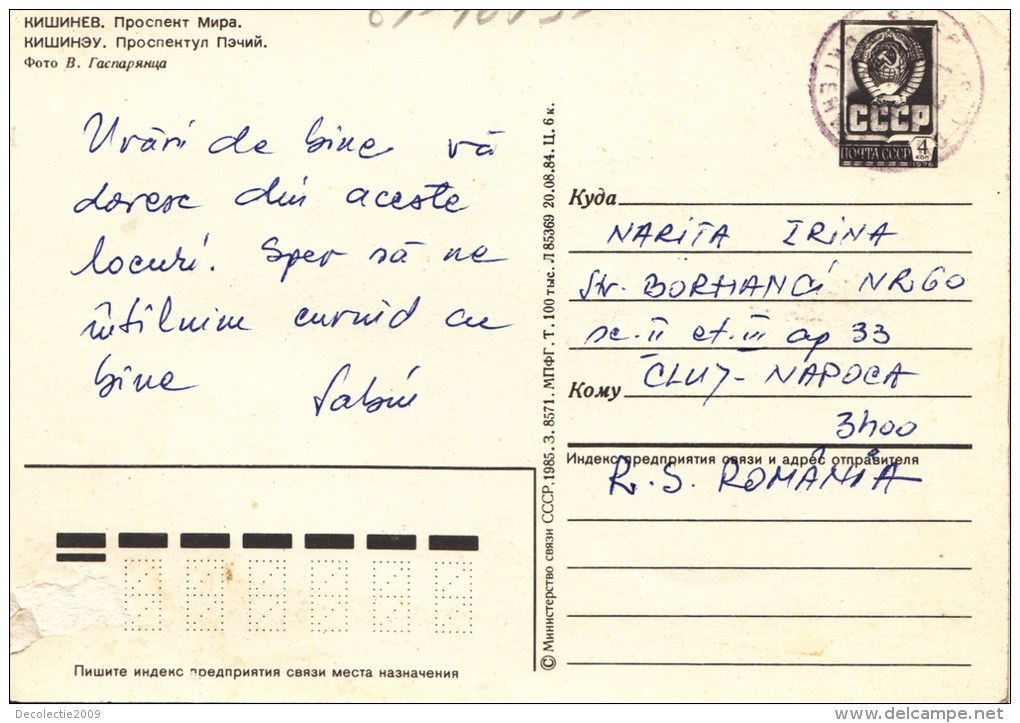 КИШИНЕВ. Проспект Мира.
КИШИНЭУ. Проспектул Пэчий.
Фото В. Гаспарянца
Urări de bine vă
doresc din aceste
locuri. Sper să ne
întîlnim curînd cu
bine
Sabin
СССР
ПОЧТА СССР
4
КОП
1976
Куда
NARIȚA IRINA
Str. BORHANCI NR 60
sc. II et. III ap 33
Кому
CLUJ-NAPOCA
3400
Индекс предприятия связи и адрес отправителя
R. S. ROMÂNIA
© Министерство связи СССР, 1985. З. 8571. МПФГ. Т. 100 тыс. Л 85369 20.08.84. Ц. 6 к.
Пишите индекс предприятия связи места назначения
Decolectie2009
www.delcampe.net